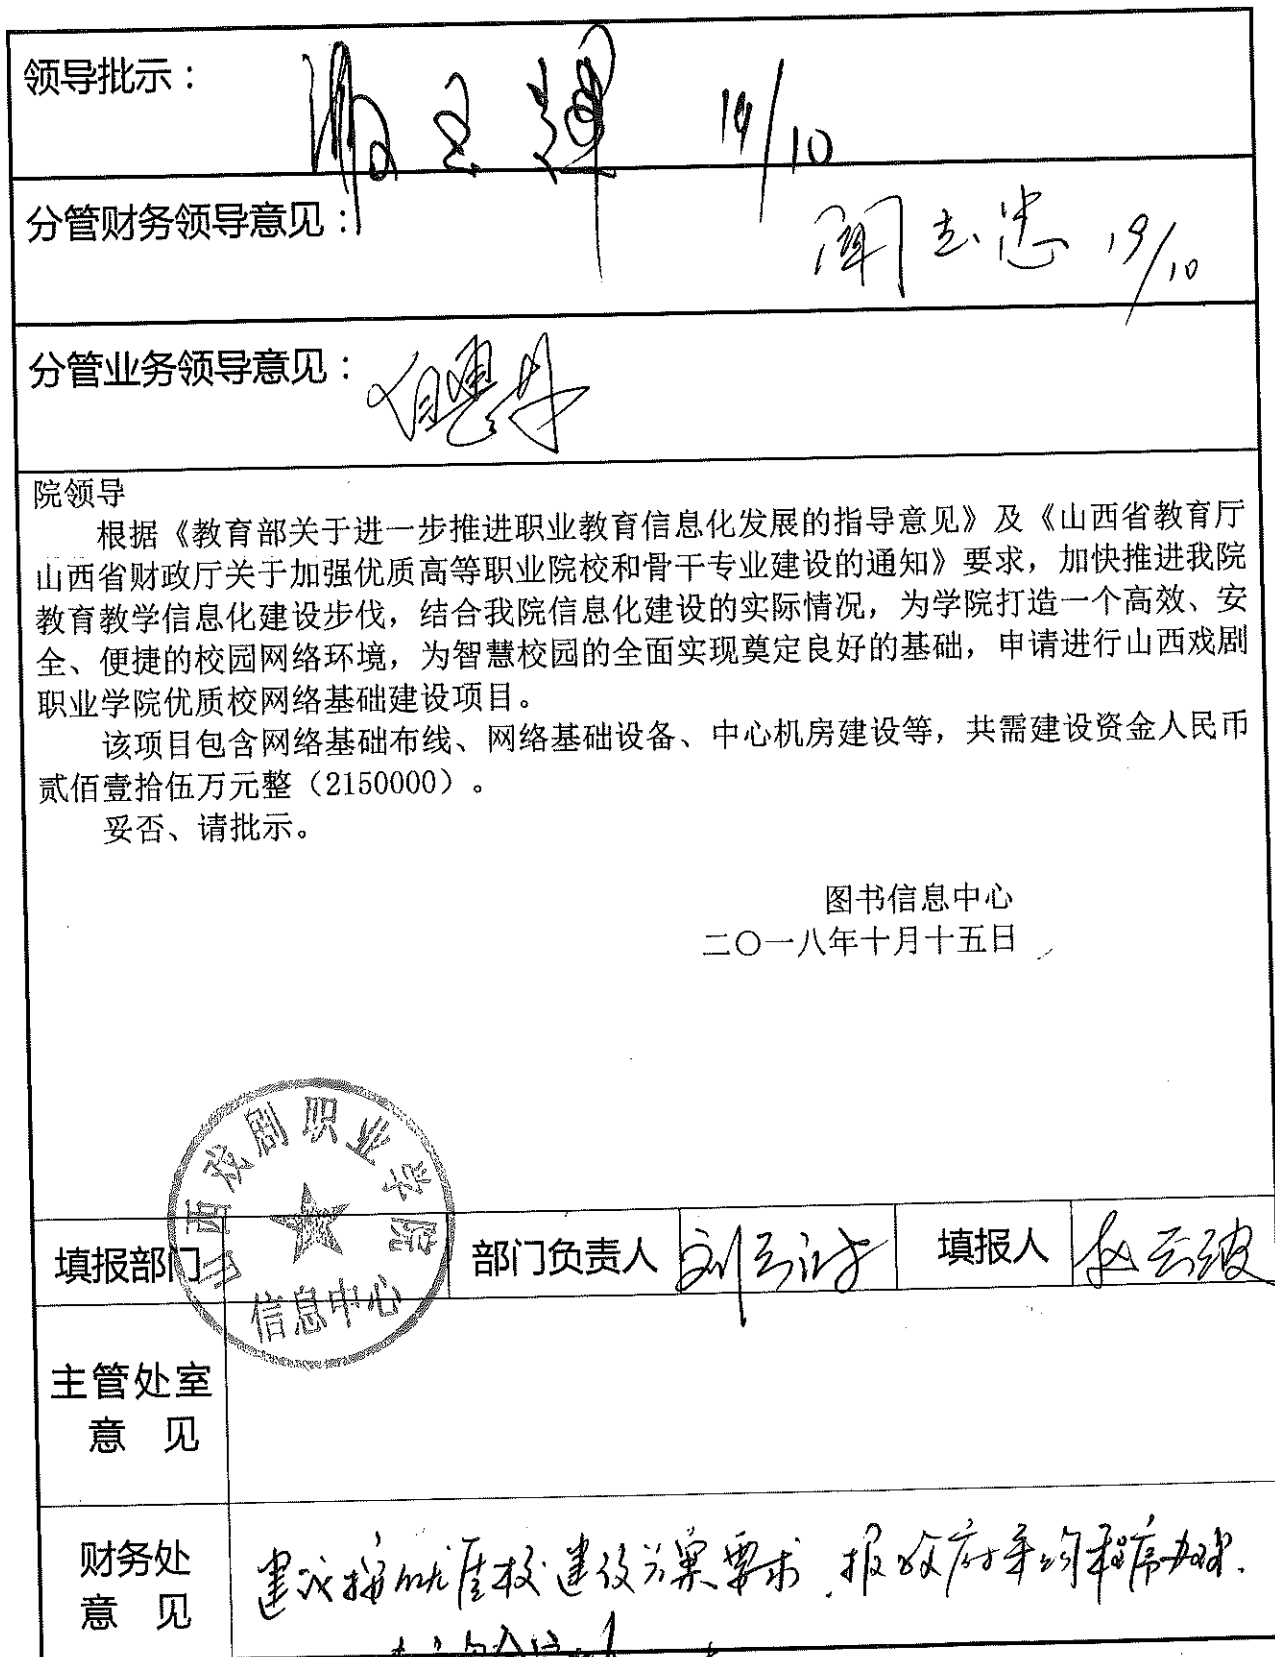 领导批示：
19/10
分管财务领导意见：
闻志忠 19/10
分管业务领导意见：
院领导
根据《教育部关于进一步推进职业教育信息化发展的指导意见》及《山西省教育厅
山西省财政厅关于加强优质高等职业院校和骨干专业建设的通知》要求，加快推进我院
教育教学信息化建设步伐，结合我院信息化建设的实际情况，为学院打造一个高效、安
全、便捷的校园网络环境，为智慧校园的全面实现奠定良好的基础，申请进行山西戏剧
职业学院优质校网络基础建设项目。
该项目包含网络基础布线、网络基础设备、中心机房建设等，共需建设资金人民币
贰佰壹拾伍万元整（2150000）。
妥否、请批示。
图书信息中心
二〇一八年十月十五日
山西戏剧职业学院
信息中心
填报部门 部门负责人 填报人 赵云波
主管处室
意 见
财务处
意 见
建议按优质校建设方案要求，报政府采购程序办理.